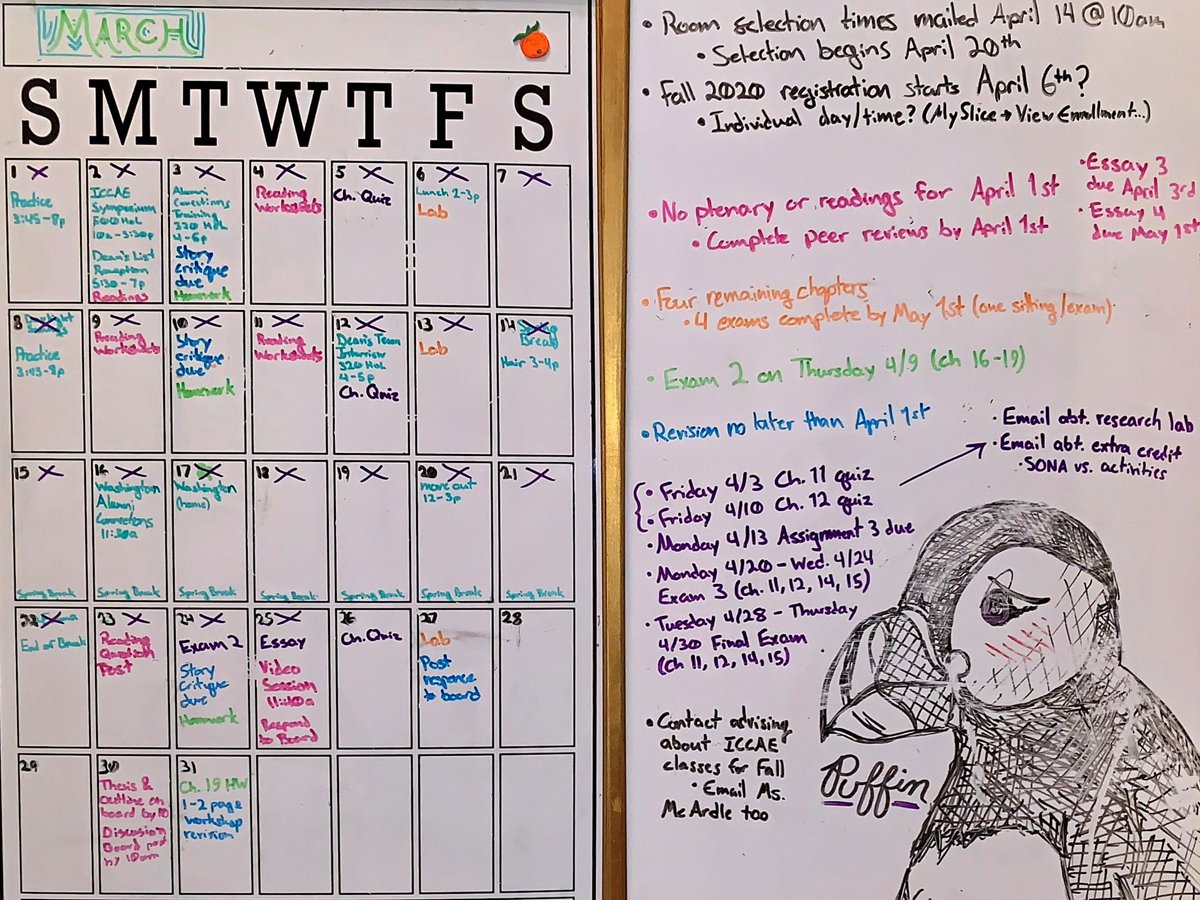 MARCH
S M T W T F S
1
Practice
3:45-8p
2
ICCAE
Symposium
500 Hol
10a-3:30p
Dean's List
Reception
5:30-7p
Readings
3
Alumni
Connections
Training
320 Hol
4-6p
Story
critique
due
Homework
4
Reading
Worksheets
5
Ch. Quiz
6
Lunch 2-3p
Lab
7
8
Practice
3:45-8p
9
Reading
Worksheets
10
Story
critique
due
Homework
11
Reading
Worksheets
12
Dean's Team
Interview
320 Hol
4-5p
Ch. Quiz
13
Lab
14
Spring
Break
Hair 3-4p
15
Spring Break
16
Washington
Alumni
Connections
11:30a
Spring Break
17
Washington
(home)
Spring Break
18
Spring Break
19
Spring Break
20
move out
12-3p
Spring Break
21
Spring Break
22
End of Break
23
Reading
Question
Post
24
Exam 2
Story
Critique
due
Homework
25
Essay
Video
Session
11:40a
Respond
to Board
26
Ch. Quiz
27
Lab
Post
response
to board
28
29
30
Thesis &
outline on
board by 10
Discussion
Board post
by 10am
31
Ch. 19 HW
1-2 page
workshop
revision
• Room selection times mailed April 14 @ 10am
• Selection begins April 20th
• Fall 2020 registration starts April 6th?
• Individual day/time? (MySlice → View Enrollment...)
• No plenary or readings for April 1st
• Complete peer reviews by April 1st
• Essay 3
due April 3rd
• Essay 4
due May 1st
• Four remaining chapters
• 4 exams complete by May 1st (one sitting/exam)
• Exam 2 on Thursday 4/9 (ch 16-19)
• Revision no later than April 1st
• Email abt. research lab
• Email abt. extra credit
• SONA vs. activities
• Friday 4/3 Ch. 11 quiz
• Friday 4/10 Ch. 12 quiz
• Monday 4/13 Assignment 3 due
• Monday 4/20 - Wed. 4/24
Exam 3 (ch. 11, 12, 14, 15)
• Tuesday 4/28 - Thursday
4/30 Final Exam
(Ch 11, 12, 14, 15)
• Contact advising
about ICCAE
classes for Fall
• Email Ms.
McArdle too
Puffin